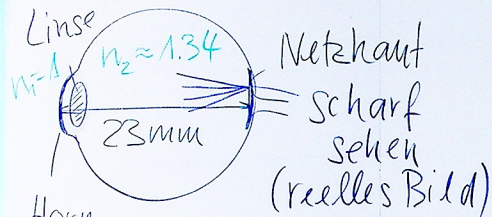 Linse
n₁=1
n₂≈1.34
23mm
Netzhaut
scharf
sehen
(reelles Bild)
Horn